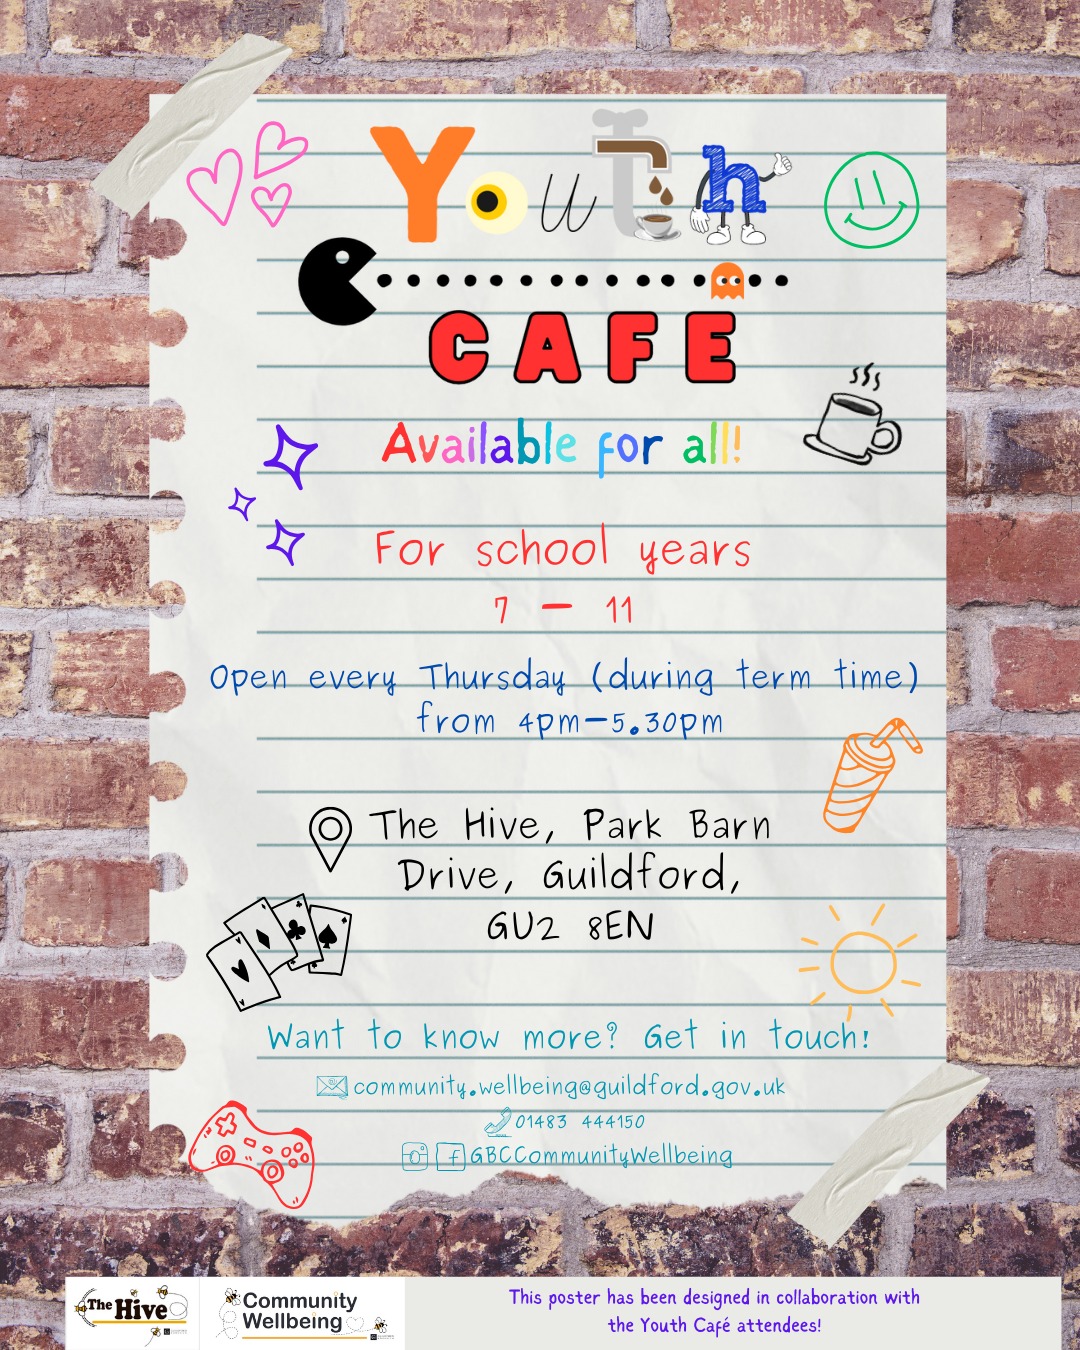 Youth
CAFE
Available for all!
For school years
7 – 11
Open every Thursday (during term time)
from 4pm–5.30pm
The Hive, Park Barn
Drive, Guildford,
GU2 8EN
Want to know more? Get in touch!
community.wellbeing@guildford.gov.uk
01483 444150
GBCCommunityWellbeing
The Hive
Community
Wellbeing
This poster has been designed in collaboration with
the Youth Café attendees!